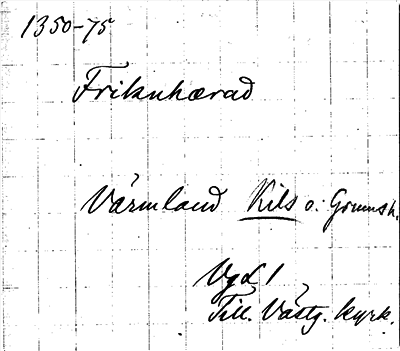 1350-75
Friknhærad
Värmland Kils o. Grums h.
VgL 1
Till. Västg. kyrk.